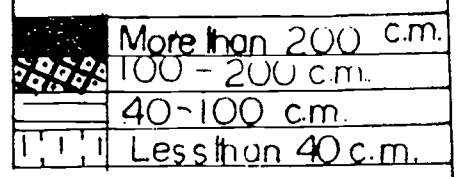 More than 200 c.m.
100 - 200 c.m.
40-100 c.m.
Less than 40 c.m.